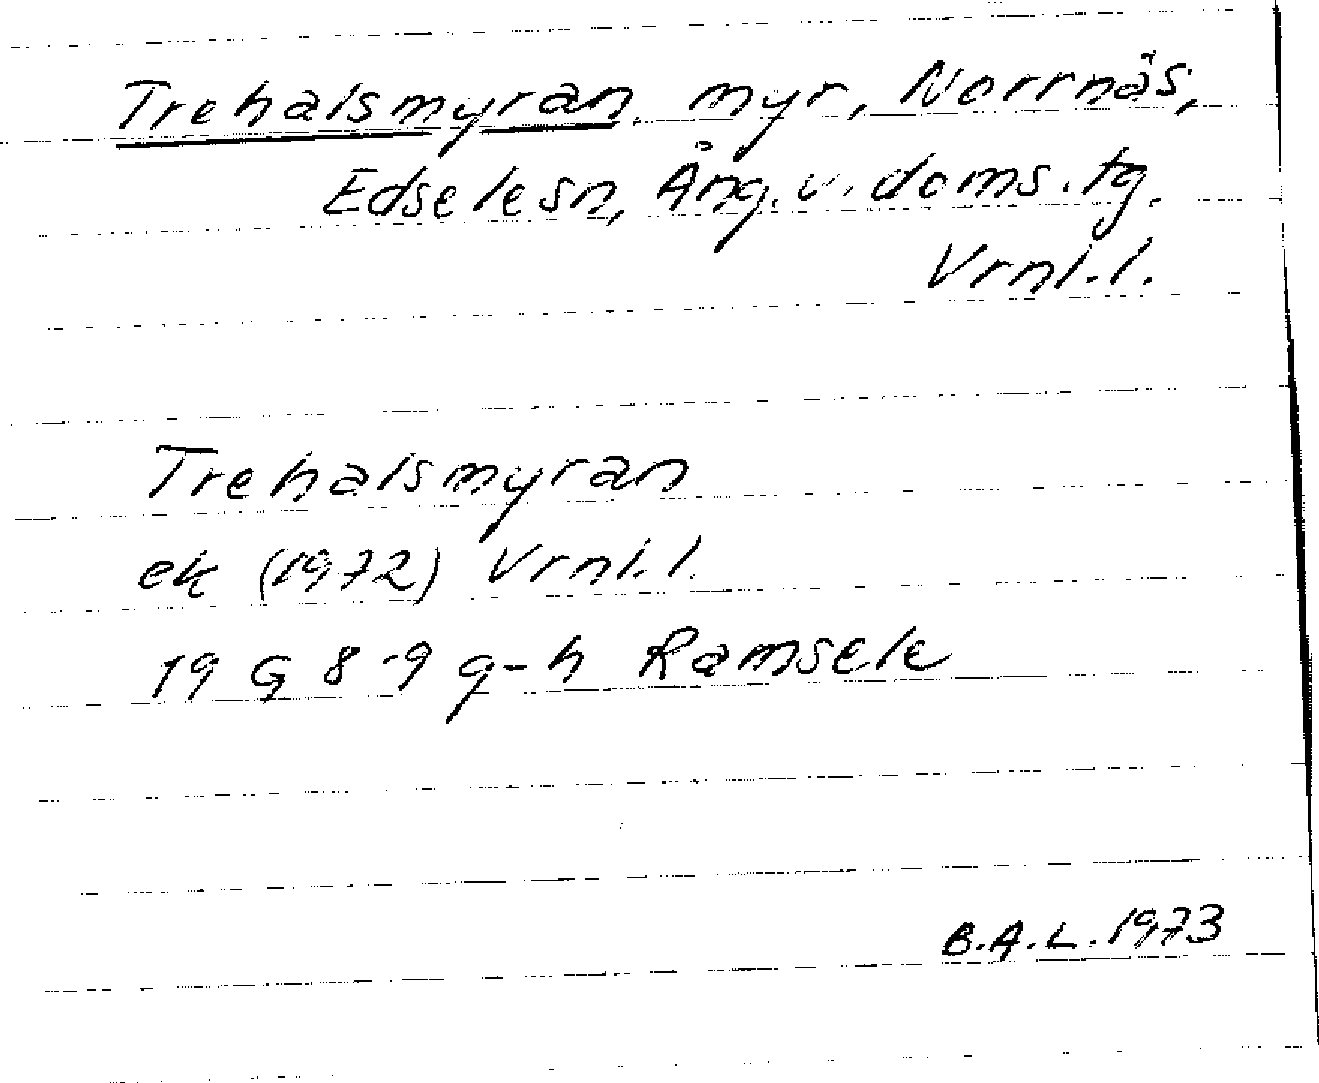 Trehalsmyran, myr, Norrnäs,
Edselesn, Ång. v. doms. tg.
Vrnl. l.
Trehalsmyran
ek (1972) Vrnl. l.
19 G 8-9 g-h Ramsele
B.A.L. 1973